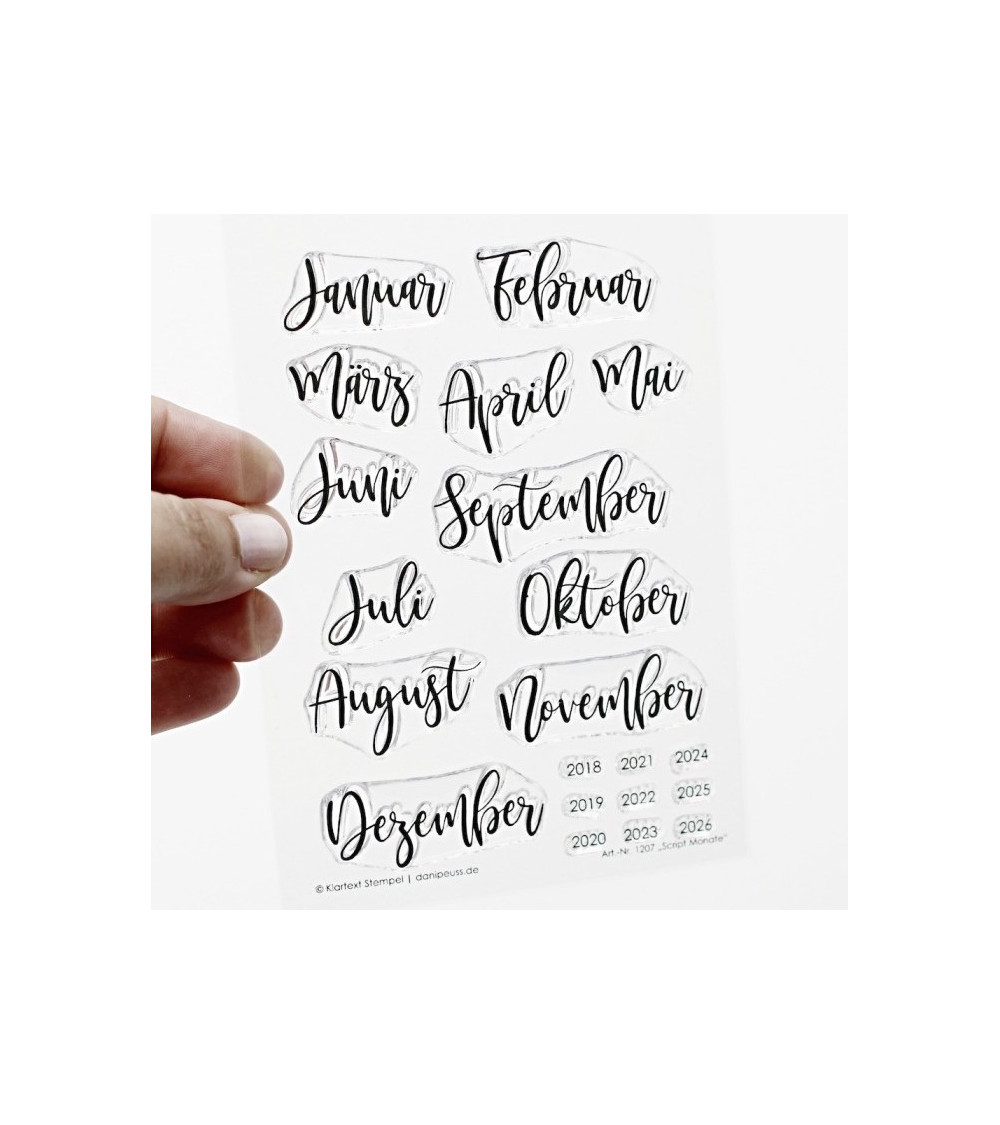 Januar Februar
März April Mai
Juni September
Juli Oktober
August November
Dezember
2018 2021 2024
2019 2022 2025
2020 2023 2026
Art.-Nr. 1207 „Script Monate“
© Klartext Stempel | danipeuss.de